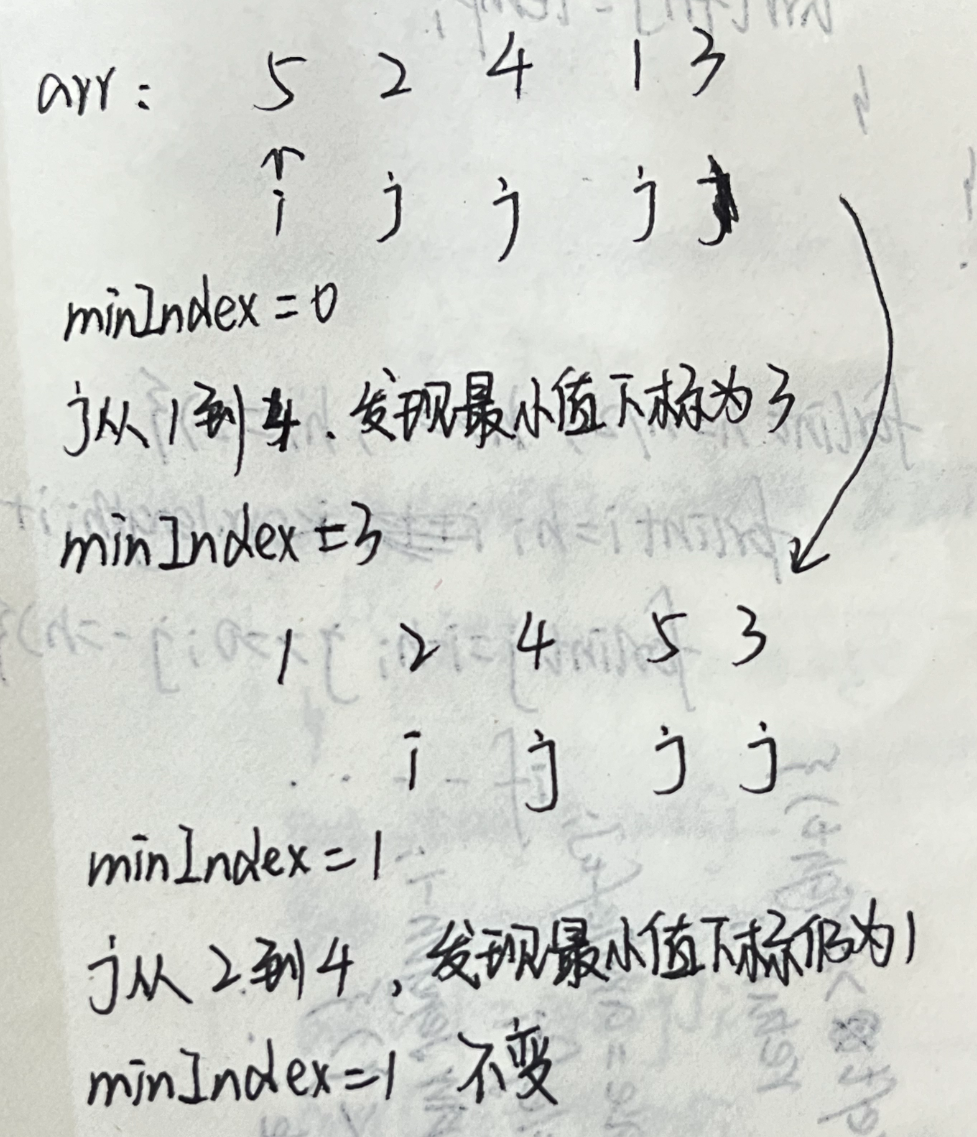 arr: 5 2 4 1 3
↑
i j j j j
minIndex = 0
j从1到4、发现最小值下标为3
minIndex = 3
1 2 4 5 3
i j j j
minIndex = 1
j从2到4，发现最小值下标仍为1
minIndex = 1 不变